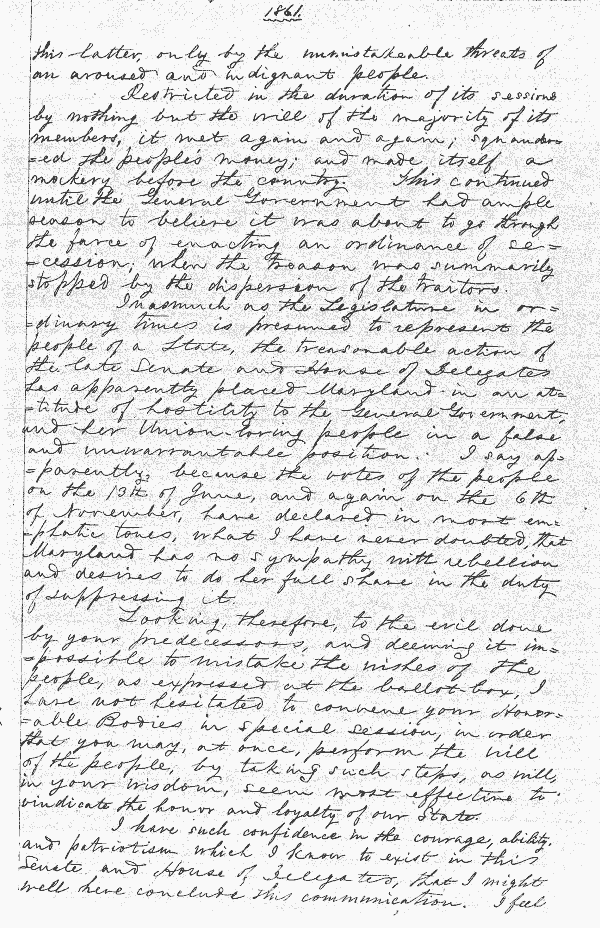 1861.
this latter, only by the unmistakeable threats of
an aroused and indignant people.
Restricted in the duration of its sessions
by nothing but the will of the majority of its
members, it met again and again; squander=
=ed the people's money; and made itself a
mockery before the country. This continued
until the General Government had ample
season to believe it was about to go through
the farce of enacting an ordinance of se=
=cession; when the treason was summarily
stopped by the dispersion of the traitors.
Inasmuch as the Legislature in or=
=dinary times is presumed to represent the
people of a State, the treasonable action of
the late Senate and House of Delegates
has apparently placed Maryland in an at=
=titude of hostility to the General Government,
and her Union-loving people in a false
and unwarrantable position. I say ap=
=parently, because the votes of the people
on the 13th of June, and again on the 6th
of November, have declared in most em=
=phatic tones, what I have never doubted, that
Maryland has no sympathy with rebellion
and desires to do her full share in the duty
of suppressing it.
Looking, therefore, to the evil done
by your predecessors, and deeming it im=
=possible to mistake the wishes of the
people, as expressed at the ballot-box, I
have not hesitated to convene your Honor=
=able Bodies in special session, in order
that you may, at once, perform the will
of the people, by taking such steps, as will,
in your wisdom, seem most effective to
vindicate the honor and loyalty of our State.
I have such confidence in the courage, ability,
and patriotism which I know to exist in this
Senate and House of Delegates, that I might
well here conclude this communication. I feel